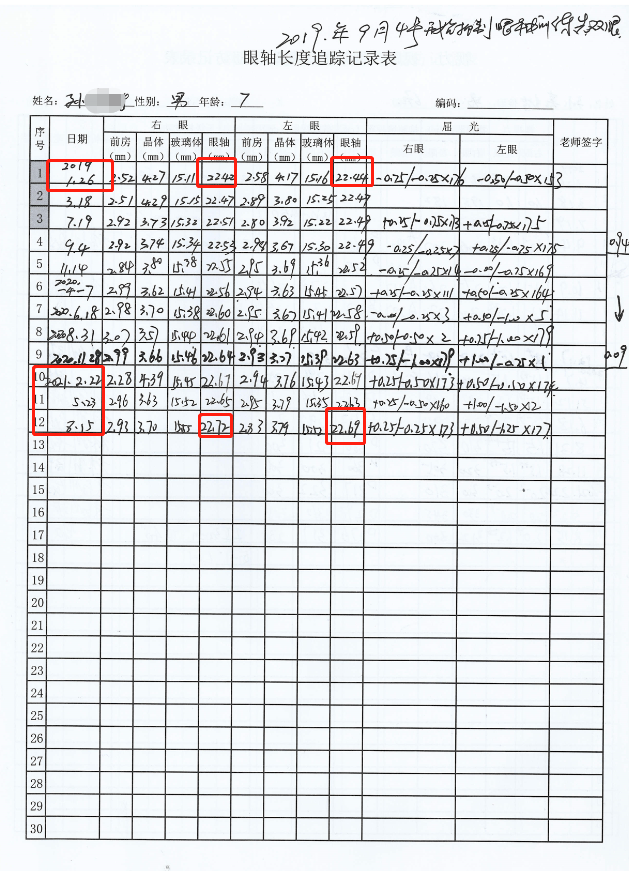 2019.年9月4号
眼轴长度追踪记录表
姓名: 孙 性别: 男 年龄: 7 编码:
序号 日期 右 眼 左 眼 屈 光 老师签字
前房(mm) 晶体(mm) 玻璃体(mm) 眼轴(mm) 前房(mm) 晶体(mm) 玻璃体(mm) 眼轴(mm) 右眼 左眼
1 2019 1.26 2.52 4.27 15.11 22.42 2.58 4.17 15.16 22.44 -0.25/-0.25×176 -0.50/-0.50×153
2 3.18 2.51 4.29 15.15 22.47 2.89 3.80 15.25 22.47
3 7.19 2.92 3.73 15.32 22.51 2.80 3.92 15.22 22.49 +0.25/-0.75×173 +0.50/-0.75×175
4 9.4 2.92 3.74 15.34 22.53 2.98 3.67 15.30 22.49 -0.25/-0.25×7 +0.25/-0.75×175 0.94
5 11.14 2.84 3.80 15.38 22.55 2.95 3.69 15.36 22.52
6 2020. 2.99 3.62 15.41 22.56 2.94 3.63 15.45 22.57 +0.25/-0.25×111 +0.50/-0.25×164
7 2020.6.18 2.98 3.70 15.38 22.60 2.95 3.67 15.41 22.58 -0.00/-0.25×3 +0.50/-1.00×5
8 2020.8.31 3.07 3.57 15.44 22.61 2.94 3.69 15.42 22.59 +0.50/-0.50×2 +0.25/-1.00×179
9 2020.11.28 2.99 3.66 15.46 22.64 2.93 3.77 15.39 22.63 +0.25/-1.00×179 +1.00/-0.25×1 0.09
10 2021.2.22 2.28 4.39 15.45 22.67 2.94 3.76 15.43 22.67 +0.25/-0.50×173 +0.50/-0.50×174
11 5.23 2.96 3.63 15.52 22.65 2.95 3.79 15.35 22.63 +0.25/-0.50×160 +1.00/-1.50×12
12 8.15 2.93 3.70 15.55 22.72 2.33 3.79 15.52 22.69 +0.25/-0.25×173 +0.50/-1.25×177
13
14
15
16
17
18
19
20
21
22
23
24
25
26
27
28
29
30